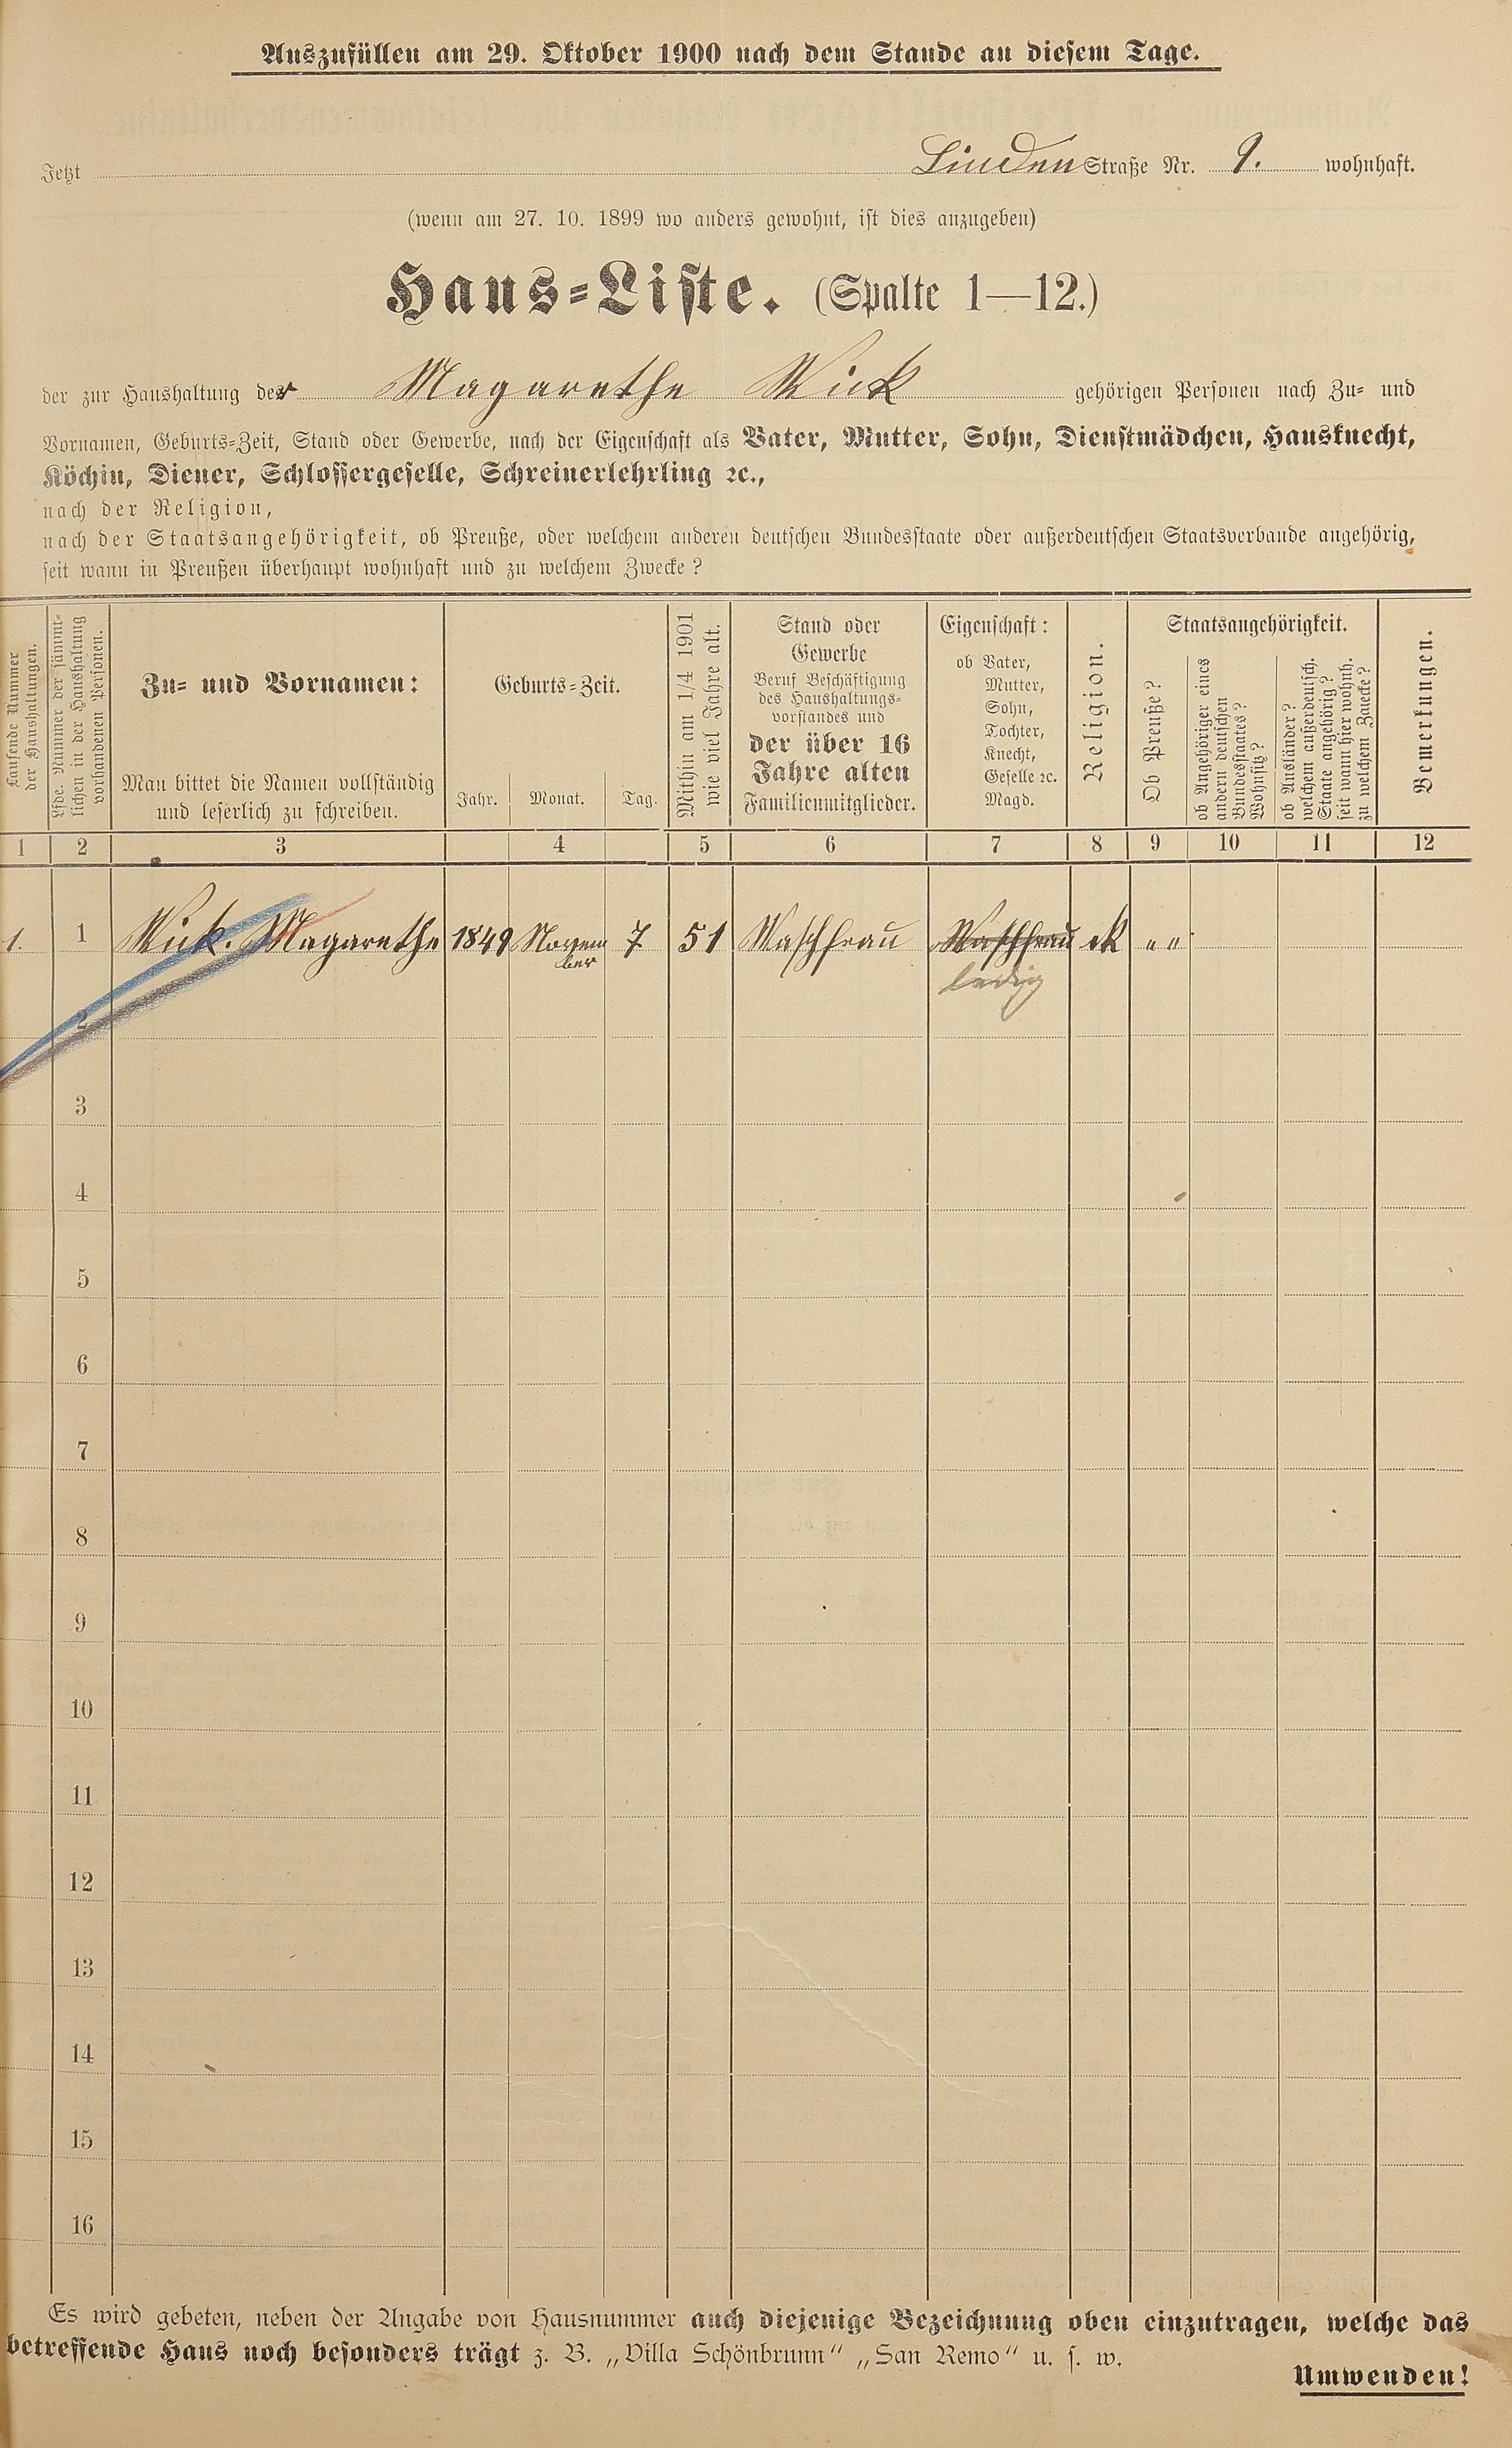 Auszufüllen am 29. Oktober 1900 nach dem Stande an diesem Tage.
Jetzt Linden Straße Nr. 9. wohnhaft.
(wenn am 27. 10. 1899 wo anders gewohnt, ist dies anzugeben)
Haus-Liste. (Spalte 1—12.)
der zur Haushaltung der Magarethe Wick gehörigen Personen nach Zu- und
Vornamen, Geburts-Zeit, Stand oder Gewerbe, nach der Eigenschaft als Vater, Mutter, Sohn, Dienstmädchen, Hausknecht,
Köchin, Diener, Schlossergeselle, Schreinerlehrling ꝛc.,
nach der Religion,
nach der Staatsangehörigkeit, ob Preuße, oder welchem anderen deutschen Bundesstaate oder außerdeutschen Staatsverbande angehörig,
seit wann in Preußen überhaupt wohnhaft und zu welchem Zwecke?
Laufende Nummer
der Haushaltungen.
Lfde. Nummer der sämmt-
lichen in der Haushaltung
vorhandenen Personen.
Zu- und Vornamen:
Man bittet die Namen vollständig
und leserlich zu schreiben.
Geburts-Zeit.
Jahr. Monat. Tag.
Mithin am 1/4 1901
wie viel Jahre alt.
Stand oder
Gewerbe
Beruf Beschäftigung
des Haushaltungs-
vorstandes und
der über 16
Jahre alten
Familienmitglieder.
Eigenschaft:
ob Vater,
Mutter,
Sohn,
Tochter,
Knecht,
Geselle ꝛc.
Magd.
Religion.
Staatsangehörigkeit.
Ob Preuße?
ob Angehöriger eines
andern deutschen
Bundesstaates?
Wohnsitz?
ob Ausländer?
welchem außerdeutsch.
Staate angehörig?
seit wann hier wohnh.
zu welchem Zwecke?
Bemerkungen.
1 2 3 4 5 6 7 8 9 10 11 12
1. 1 Wick. Magarethe 1849 Novem 7 51 Waschfrau Waschfrau K " "
ber
ledig
2
3
4
5
6
7
8
9
10
11
12
13
14
15
16
Es wird gebeten, neben der Angabe von Hausnummer auch diejenige Bezeichnung oben einzutragen, welche das
betreffende Haus noch besonders trägt z. B. „Villa Schönbrunn“ „San Remo“ u. s. w.
Umwenden!